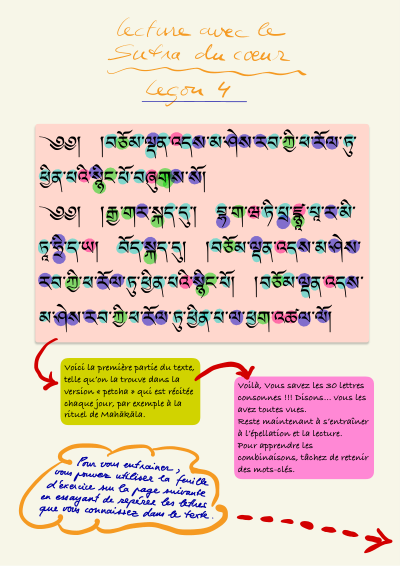 Lecture avec le
Sutra du cœur
Leçon 4
༄༅། །བཅོམ་ལྡན་འདས་མ་ཤེས་རབ་ཀྱི་ཕ་རོལ་ཏུ་
ཕྱིན་པའི་སྙིང་པོ་བཞུགས་སོ།
༄༅། །རྒྱ་གར་སྐད་དུ། བྷ་ག་ཝ་ཏི་པྲ་ཛྙཱ་པཱ་ར་མི་
ཏཱ་ཧྲི་ད་ཡ། བོད་སྐད་དུ། །བཅོམ་ལྡན་འདས་མ་ཤེས་
རབ་ཀྱི་ཕ་རོལ་ཏུ་ཕྱིན་པའི་སྙིང་པོ། །བཅོམ་ལྡན་འདས་
མ་ཤེས་རབ་ཀྱི་ཕ་རོལ་ཏུ་ཕྱིན་པ་ལ་ཕྱག་འཚལ་ལོ།
Voici la première partie du texte,
telle qu'on la trouve dans la
version « petcha » qui est récitée
chaque jour, par exemple à la
rituel de Mahākāla.
Voilà, Vous savez les 30 lettres
consonnes !!! Disons... vous les
avez toutes vues.
Reste maintenant à s'entraîner
à l'épellation et la lecture.
Pour apprendre les
combinaisons, tâchez de retenir
des mots-clés.
Pour vous entrainer,
vous pouvez utiliser la feuille
d'exercice sur la page suivante
en essayant de repérer les lettres
que vous connaissez dans le texte.